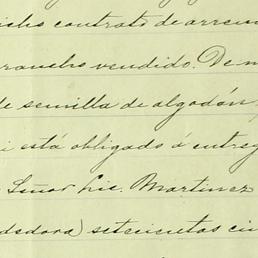 icho contrato de arren
rancho vendido. De m
de semilla de algodón,
i está obligado á entreg
Señor Lic. Martinez
dedora) setecientas cin